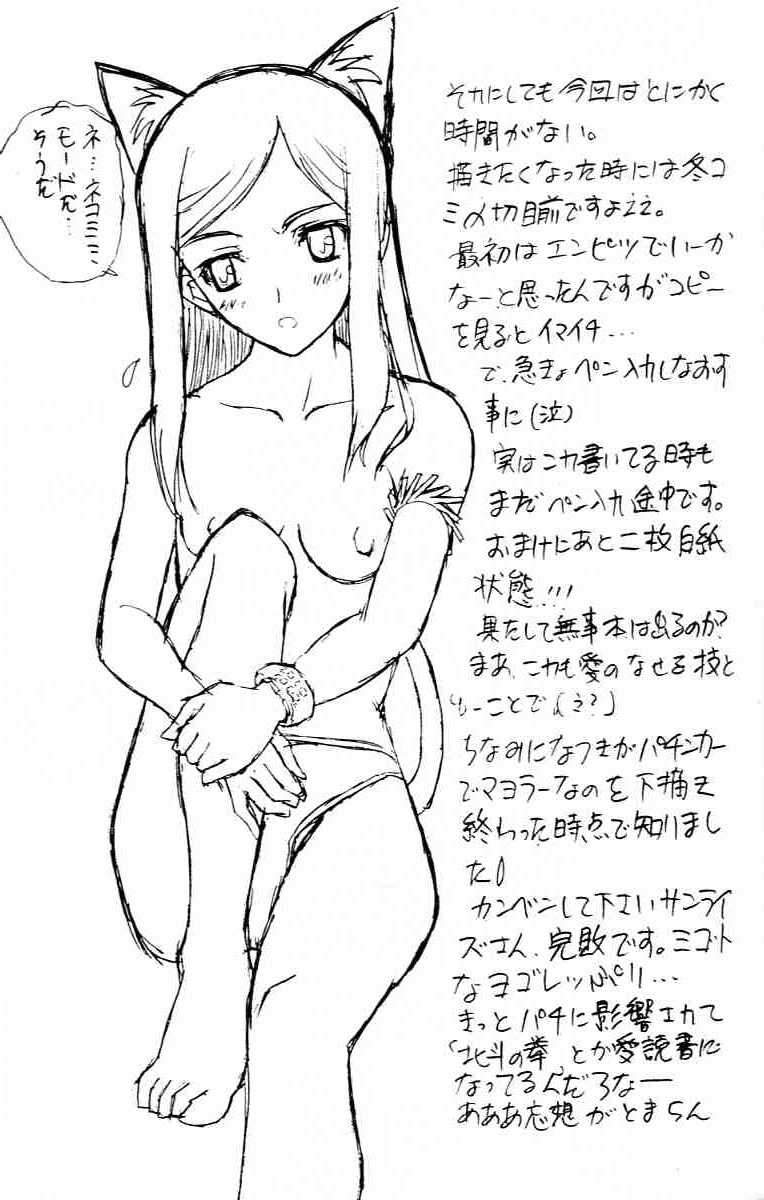 ネ…ネコミミ
モードだ…
そうだ
それにしても今回はとにかく
時間がない。
描きたくなった時には冬コ
ミ〆切目前ですよ22。
最初はエンピツでいーか
なーと思ったんですがコピー
を見るとイマイチ…
で、急きょペン入れしなおす
事に(泣)
実はこれ書いてる時も
まだペン入れ途中です。
おまけにあと二枚白紙
状態!!!
果たして無事本は出るのか?
まあ、これも愛のなせる技と
いーことで(え?」
ちなみになつきがパチンカー
でマヨラーなのを下描き
終わった時点で知りまし
た
カンベンして下さいサンライ
ズさん、完敗です。ミゴト
なヨゴレッぷり…
きっとパチに影響されて
「北斗の拳」とか愛読書に
なってるんだろなー
あああ妄想がとまらん